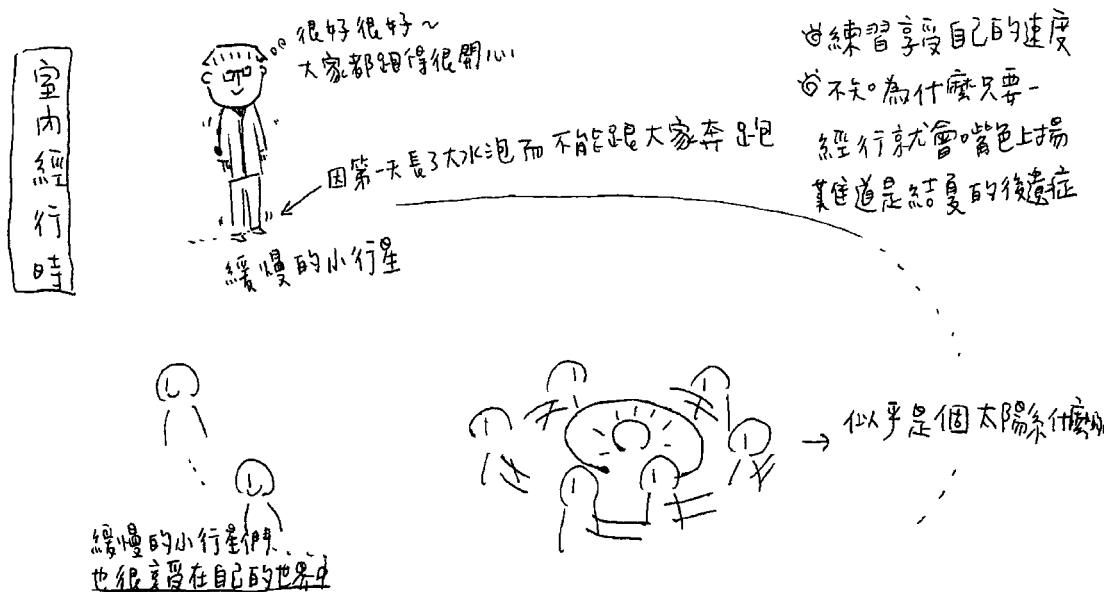 室內經行時
很好很好～
大家都跑得很開心
因第一天長了大水泡而不能跟大家奔跑
緩慢的小行星
練習享受自己的速度
不知為什麼只要一
經行就會嘴色上揚
難道是結夏的後遺症
似乎是個太陽系什麼的
緩慢的小行星們...
也很享受在自己的世界中